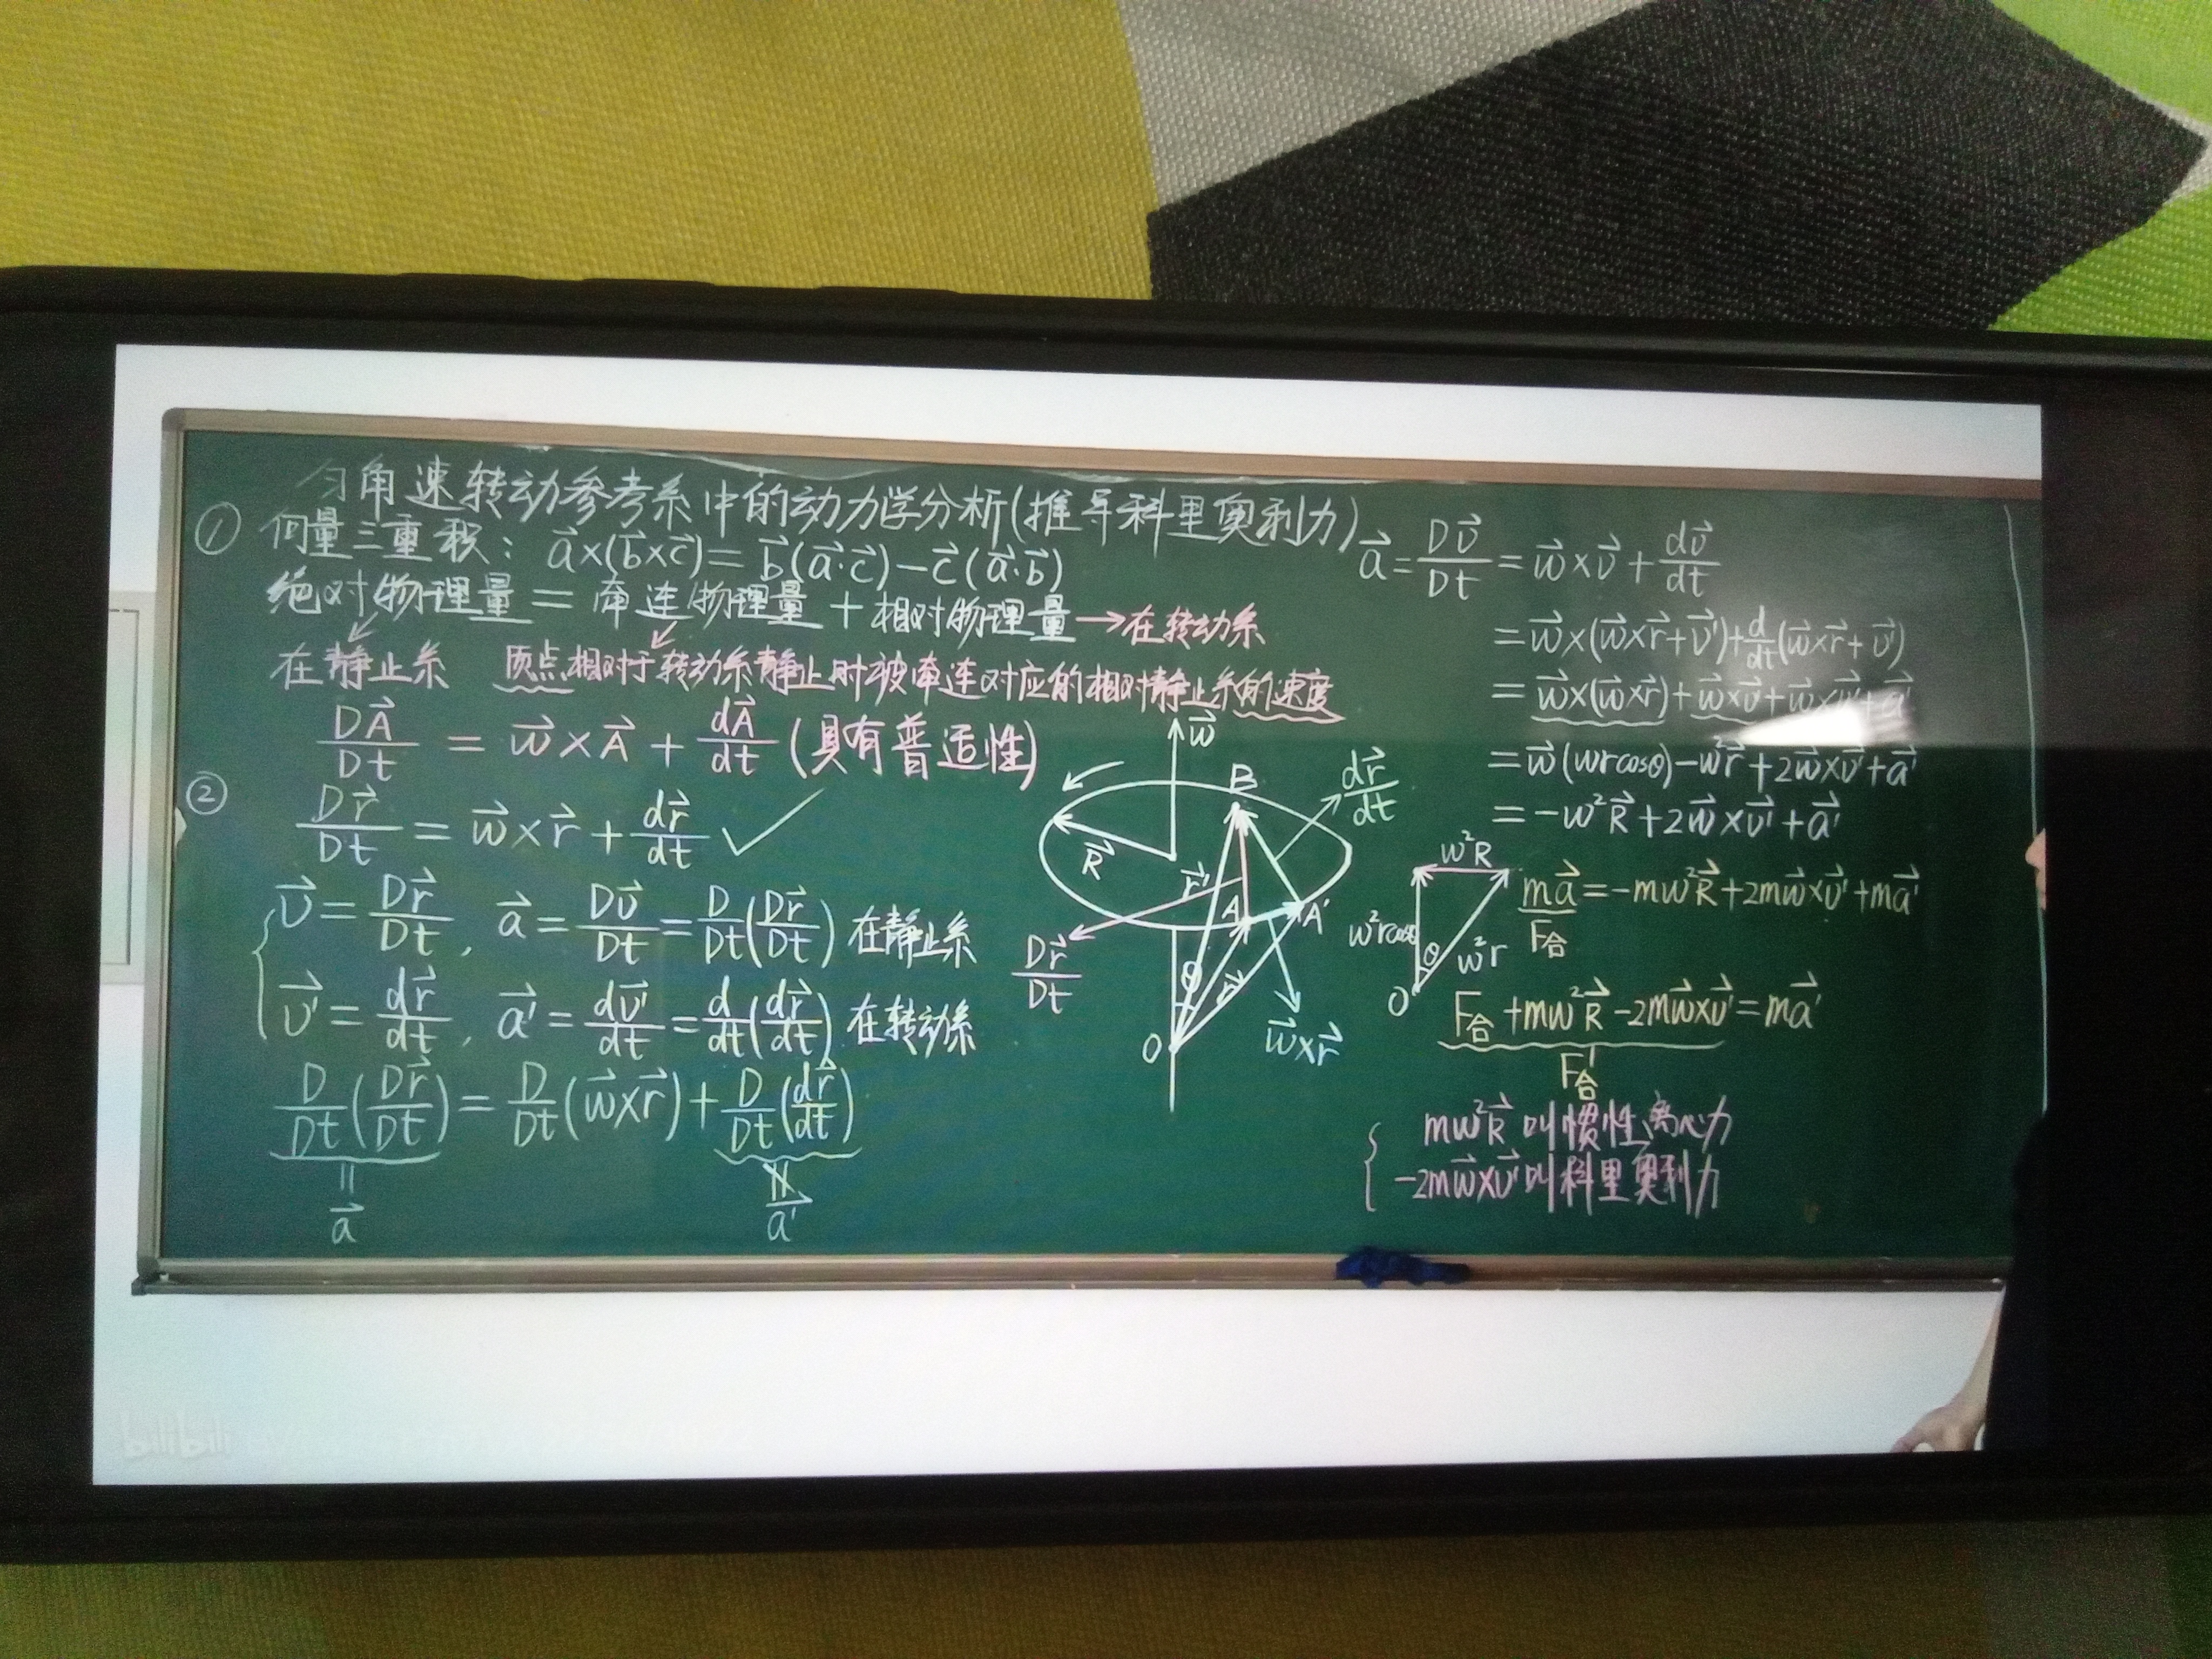 匀角速转动参考系中的动力学分析(推导科里奥利力)
① 向量三重积: a⃗×(b⃗×c⃗)=b⃗(a⃗·c⃗)-c⃗(a⃗·b⃗)
绝对物理量 = 牵连物理量 + 相对物理量 → 在转动系
在静止系 质点相对于转动系静止时被牵连对应的相对静止系的速度
DA⃗/Dt = w⃗×A⃗ + dA⃗/dt (具有普适性)
② Dr⃗/Dt = w⃗×r⃗ + dr⃗/dt ✓
v⃗ = Dr⃗/Dt, a⃗ = Dv⃗/Dt = D/Dt(Dr⃗/Dt) 在静止系
v⃗' = dr⃗/dt, a⃗' = dv⃗'/dt = d/dt(dr⃗/dt) 在转动系
D/Dt(Dr⃗/Dt) = D/Dt(w⃗×r⃗) + D/Dt(dr⃗/dt)
a⃗
a⃗'
w⃗
B
dr⃗/dt
R⃗
r⃗'
A
A'
Dr⃗/Dt
θ
r⃗
O
w⃗×r⃗
a⃗ = Dv⃗/Dt = w⃗×v⃗ + dv⃗/dt
= w⃗×(w⃗×r⃗+v⃗')+d/dt(w⃗×r⃗+v⃗')
= w⃗×(w⃗×r⃗)+w⃗×v⃗'+w⃗×v⃗'+a⃗'
= w⃗(wrcosθ)-w²r⃗+2w⃗×v⃗'+a⃗'
= -w²R⃗+2w⃗×v⃗'+a⃗'
w²R
w²rcosθ
θ
w²r
O
ma⃗=-mw²R⃗+2mw⃗×v⃗'+ma⃗'
F合
F合+mw²R⃗-2mw⃗×v⃗'=ma⃗'
F合'
mw²R⃗ 叫惯性离心力
-2mw⃗×v⃗'叫科里奥利力
bilibili